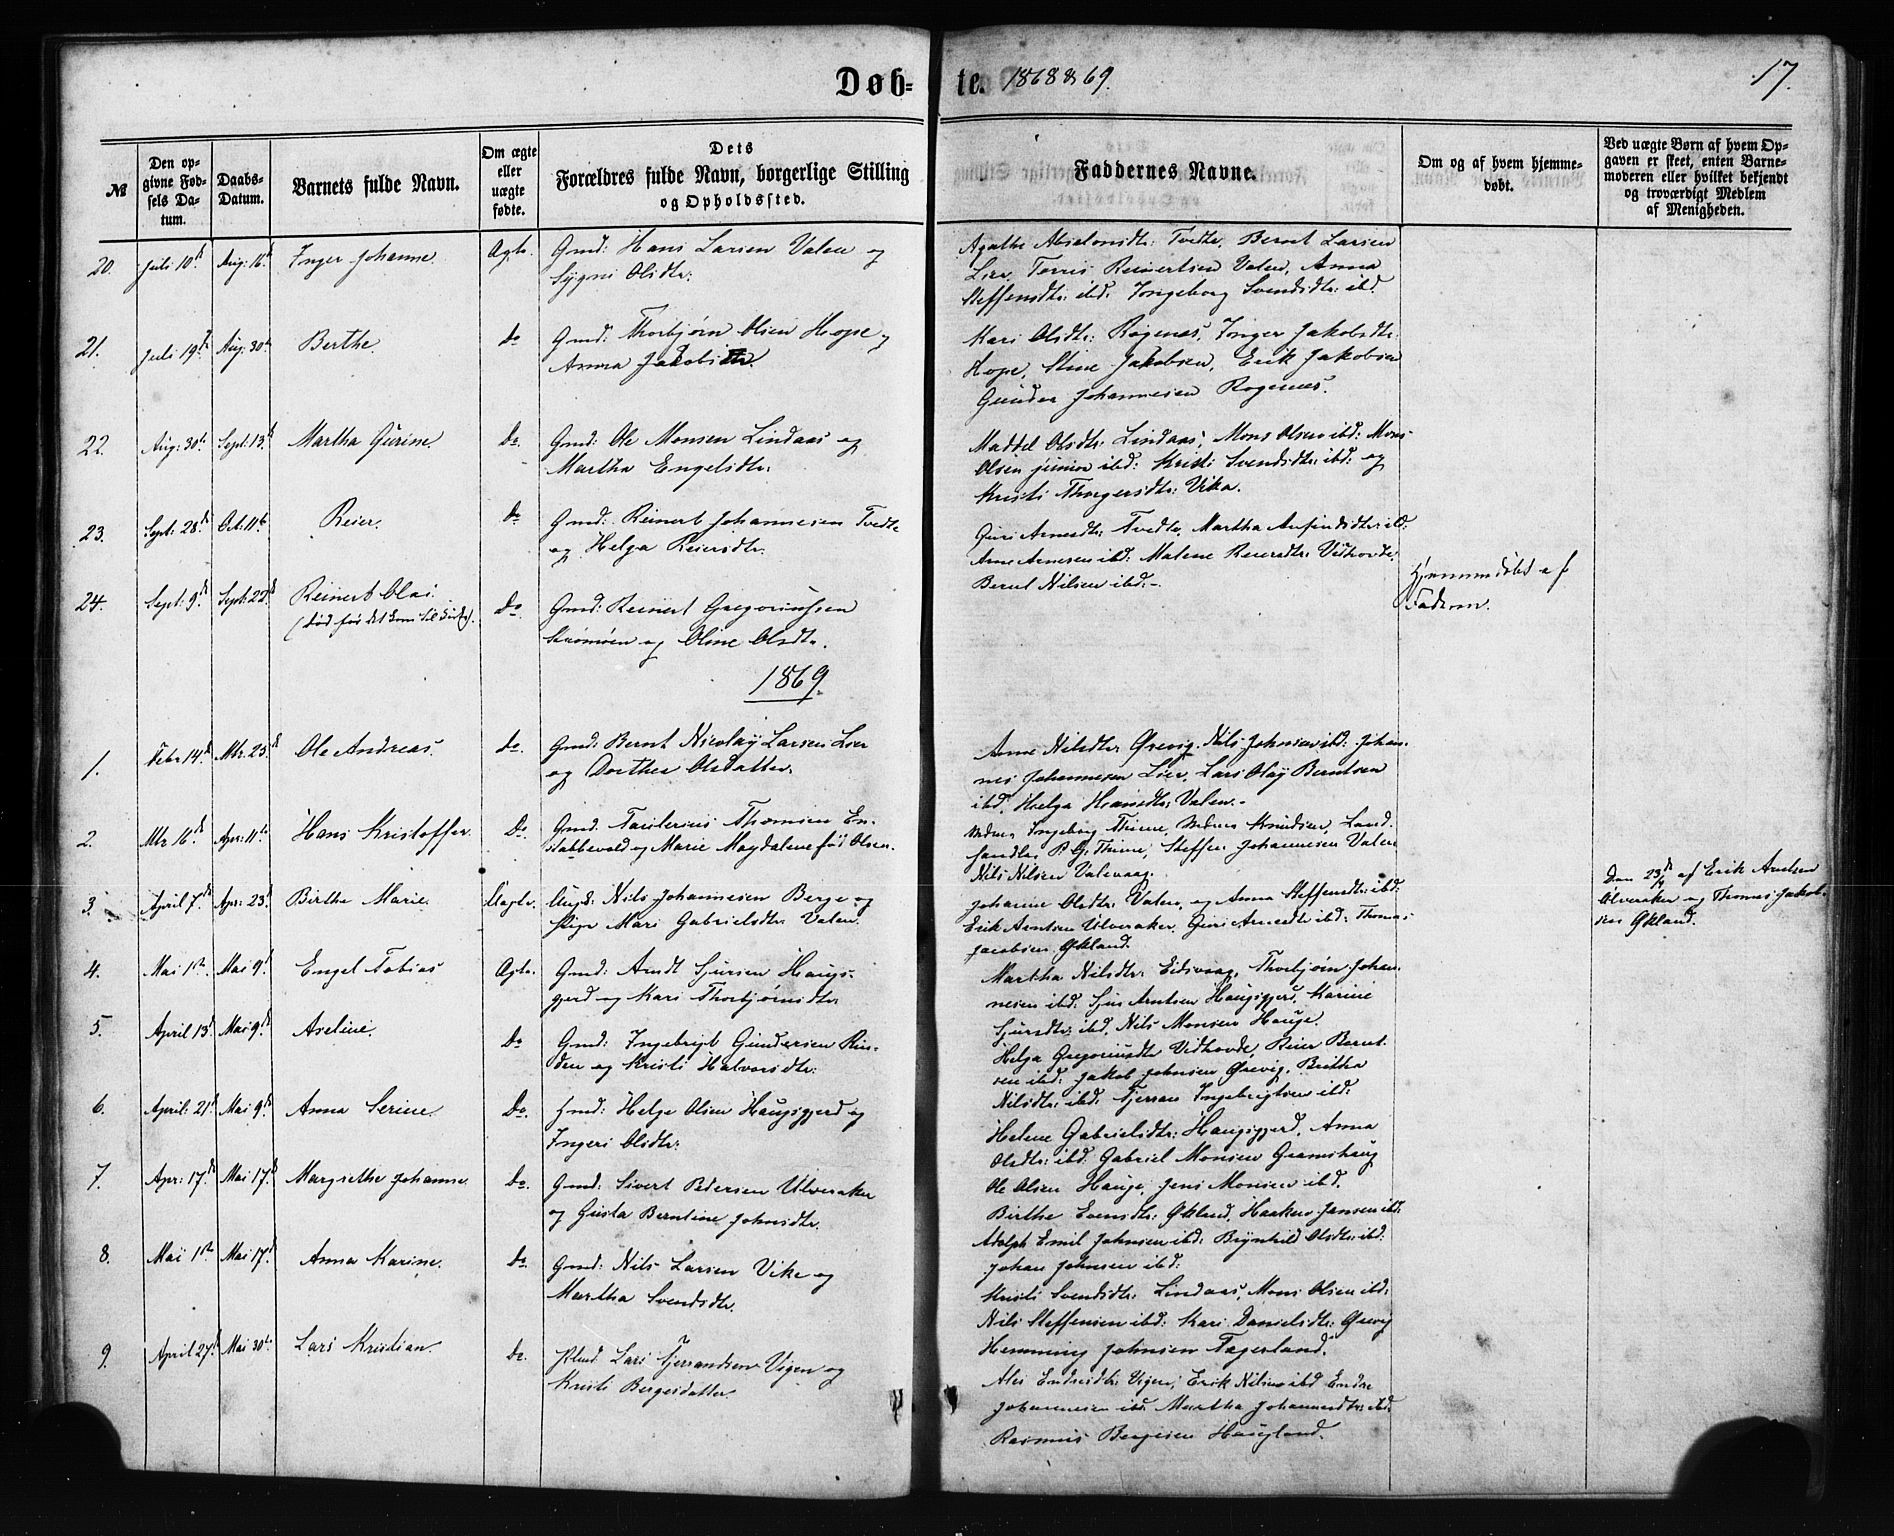 Døb=
te. 1868 & 69.
17.
№
Den op-
givne Fød-
sels Da-
tum.
Daabs-
Datum.
Barnets fulde Navn.
Om ægte
eller
uægte
fødte.
Dets
Forældres fulde Navn, borgerlige Stilling
og Opholdssted.
Faddernes Navne.
Om og af hvem hjemme-
døbt.
Ved uægte Børn af hvem Op-
gaven er skeet, enten Barne-
moderen eller hvilket bekjendt
og troværdigt Medlem
af Menigheden.
20. Juli 10d. Aug: 16d Inger Johanne Ægte. Gmd: Hans Larsen Valen og
Sygni Olsdtr:
Agathe Absalonsdtr: Tvedte, Bernt Larsen
Lier, Torris Reinertsen Valen, Anna
Steffensdtr: ibd: Ingeborg Svendsdtr: ibd.
21. Juli 19d. Aug. 30te Berthe. Do Gmd: Thorbjørn Olsen Hope og
Anna Jakobsdtr.
Kari Olsdtr: Røgenæs, Inger Jakobsdtr:
Hope, Stine Jakobsen, Erik Jakobsen
Gunder Johannesen Røgenæs.
22. Aug: 30te Sept: 13d Martha Gurine. Do. Gmd: Ole Monsen Lindaas og
Martha Engelsdtr:
Maddel Olsdtr: Lindaas, Mons Olsen ibd: Mons
Olsen junior ibd: Kristi Svendsdtr: ibd: og
Kristi Thorgersdtr: Vika.
23. Sept: 28d Oct: 11te Reier. Do Gmd: Reinert Johannesen Tvedte
og Helga Reiersdtr.
Guri Arnesdtr: Tvedte, Martha Anfindsdtr: ibd:
Arne Arnesen ibd: Malene Reiersdtr: Vidhovde
Bernt Nilsen ibd. -
24. Sept: 9d Sept: 22d Reinert Olai.
(død før det kom til Kirke). Do. Gmd: Reinert Gregoriussen
Strømøen og Oline Olsdtr.
Hjemmedøbt af
Faderen.
1869.
1. Febr 14d. Mtr. 25d Ole Andreas. Do. Gmd: Bernt Nicolay Larsen Lier
og Dorthea Olsdatter.
Anne Nilsdtr Ørevig. Nils Johnsen ibd: Johan-
nes Johannesen Lier, Lars Olay Berntsen
ibd, Helga Hansdtr: Valen. -
2. Mtr 16d Apr: 11te Hans Kristoffer. Do. Gmd. Thomsen En-
stabbevold og Marie Magdalene fød Olsen.
Ingeborg Thime, Knudsen, Land-
handler P. G. Thime, Steffen Johannesen Valen
Nils Nilsen Valevaag.
3. April 7d Apr: 23d Birthe Marie Uægte. Ungk: Nils Johannesen Berge og
Pige Mari Gabrielsdtr Valen.
Johanne Olsdtr: Valen, og Anna Steffensdtr: ibd:
Erik Arntsen Ulveraker, Guri Arnesdtr ibd: Thomas
Jacobsen Økland.
Den 23d/4 af Erik Arntsen
Ulveraker og Thomas Jakob-
sen Økland.
4. Mai 1ste. Mai 9d Engel Tobias Ægte. Gmd: Arndt Sjursen Haugs-
gjerd og Kari Thorbjørnsdtr
Martha Nilsdtr: Eidsvaag, Thorbjørn Johan-
nesen ibd: Sjur Arntsen Haugsgjerd, Karine
Sjursdtr: ibd, Nils Monsen Hauge.
5 April 13d. Mai 9d. Aseline. Do Gmd: Ingebrigt Gundersen Rin-
den og Kristi Halvorsdtr:
Helga Gregoriusdtr Vidhovde, Reier Bernt-
sen ibd: Jakob Johnsen Ørevig, Brita
Nilsdtr: ibd: Tjerran Ingebrigtsen ibd:
6. April: 21d Mai 9d Anna Serine. Do. Gmd: Helge Olsen Haugsgjerd og
Ingeri Olsdtr:
Helene Gabrielsdtr: Haugsgjerd, Anna
Olsdtr: ibd: Gabriel Monsen Gramshaug
Ole Olsen Hauge, Jens Monsen ibd.
7. Apr: 17d Mai 17d Margrethe Johanne. Do. Gmd: Sivert Pedersen Ulveraker
og Gusta Berntine Johnsdtr.
Birthe Evensdtr: Økland, Haaken Jansen ibd:
Adolph Emil Johnsen ibd: Brynhild Olsdtr: ibd:
Johan Johnsen ibd:
8. Mai 1ste Mai 17d Anna Karine. Do. Gmd: Nils Larsen Vike og
Martha Svendsdtr.
Kristi Svendsdtr: Lindaas, Mons Olsen ibd:
Nils Steffensen ibd: Kari Danielsdtr: Ørevig
Hemming Johnsen Fagerland.
9. April 27d Mai 30te Lars Kristian. Do. Lars Tjerrandsen Vigen og
Kristi Bergesdatter.
Ales Endresdtr: Vigen, Erik Nilsen ibd Endre
Johannesen ibd. Martha Johannesdtr: ibd:
Rasmus Bergesen Haugland.